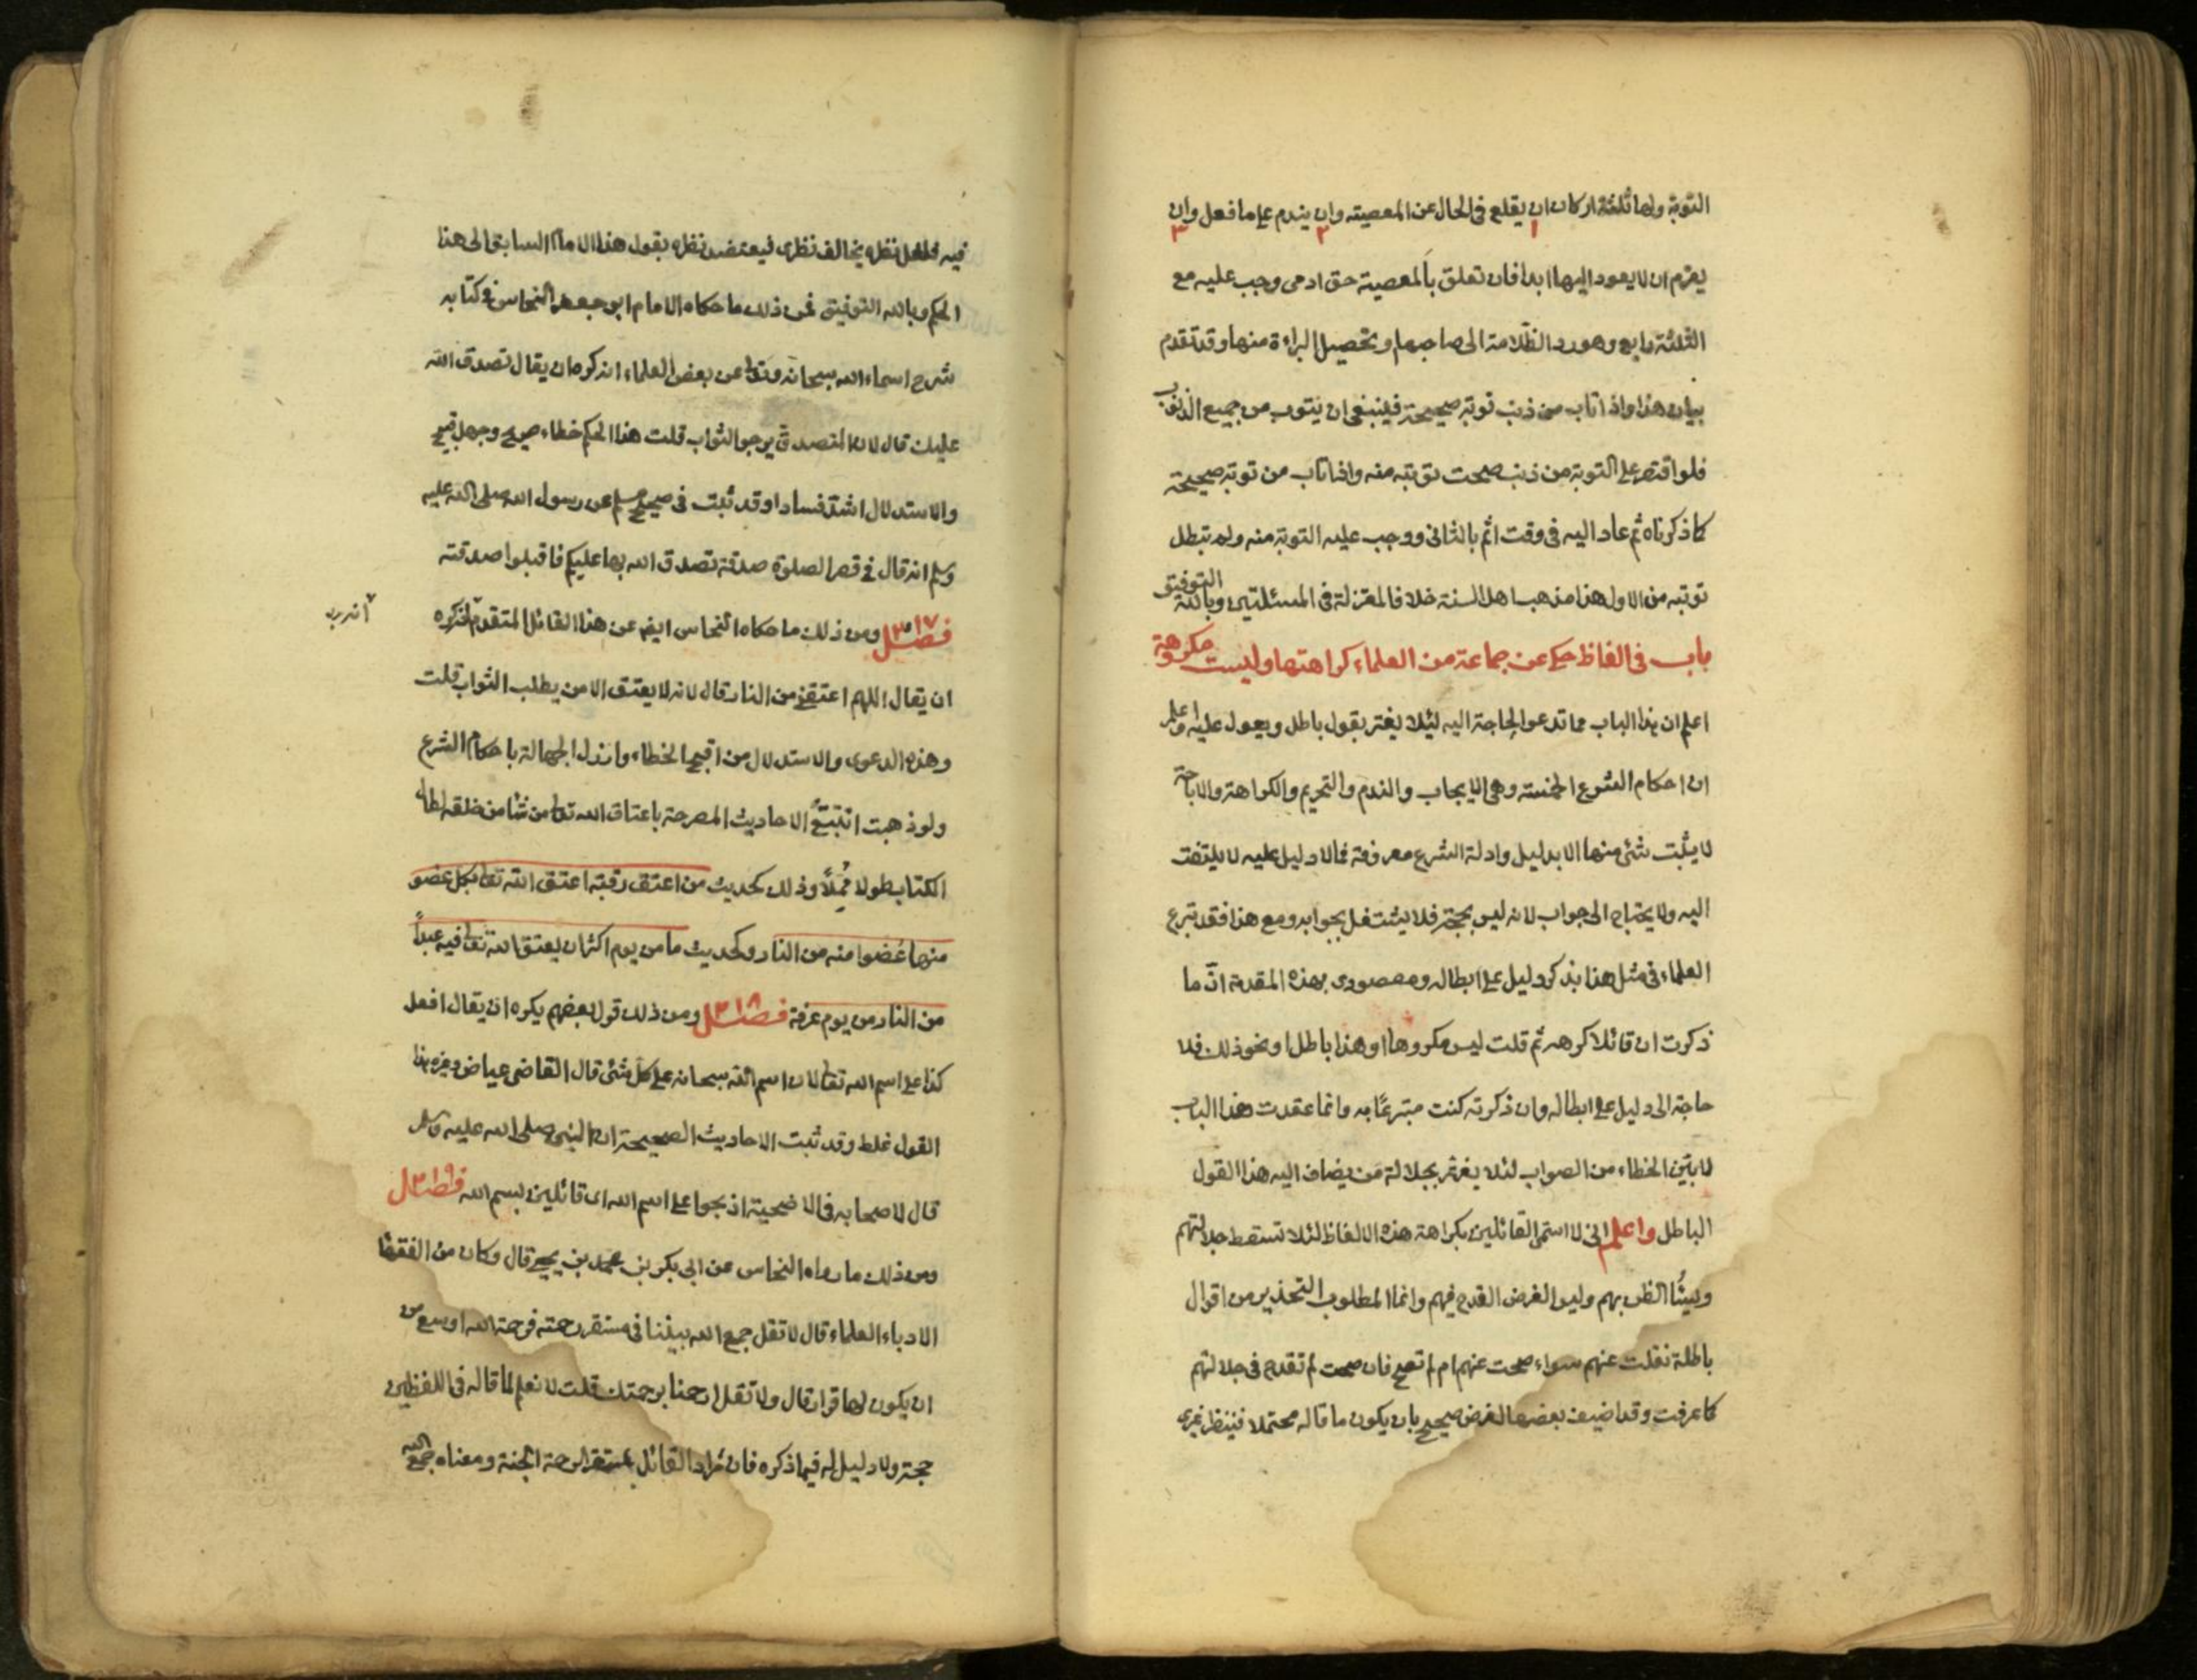 التوبة ولها ثلثة اركان ان يقلع فى الحال عن المعصيته وان يندم على ما فعل وان
١ ٢ ٣
يعزم ان لا يعود اليها ابدا فان تعلق بالمعصية حق ادمى وجب عليه مع
الثلثة رابع وهو رد الظلامة الى صاحبها وتحصيل البراءة منها وقد تقدم
بيان هذا واذا تاب من ذنب توبة صحيحة فينبغى ان يتوب من جميع الذنوب
فلو اقتصر على التوبة من ذنب صحت توبته منه واذا تاب من توبة صحيحة
كما ذكرناه ثم عاد اليه فى وقت اثم بالثانى ووجب عليه التوبة منه ولم تبطل
توبته من الاول هذا مذهب اهل السنة خلافا للمعتزلة فى المسئلتين وبالله التوفيق
باب فى الفاظ حكى عن جماعة من العلماء كراهتها وليست مكروهة
اعلم ان هذا الباب مما تدعو الحاجة اليه لئلا يغتر بقول باطل ويعول عليه واعلم
ان احكام الشرع الخمسة وهى الايجاب والندم والتحريم والكراهة والاباحة
لا يثبت شئ منها الا بدليل وادلة الشرع معروفة فما لا دليل عليه لا يلتفت
اليه ولا يحتاج الى جواب لانه ليس بحجة فلا يشتغل بجوابه ومع هذا فقد تبرع
العلماء فى مثل هذا بذكر دليل على ابطاله ومقصودى بهذه المقدمة ان ما
ذكرت ان قائلا كرهه ثم قلت ليس مكروها او هذا باطل او نحو ذلك فلا
حاجة الى دليل على ابطاله وان ذكرته كنت متبرعا به وانما عقدت هذا الباب
لابين الخطاء من الصواب لئلا يغتر بجلالة من يضاف اليه هذا القول
الباطل واعلم انى لا اسمى القائلين بكراهة هذه الالفاظ لئلا تسقط جلالتهم
ويسئا الظن بهم وليس الغرض القدح فيهم وانما المطلوب التحذير من اقوال
باطلة نقلت عنهم سواء صحت عنهم ام لم تصح فان صحت لم تقدح فى جلالتهم
كما عرفت وقد اضيف بعضها لغرض صحيح بان يكون ما قاله محتملا فينظر غيرى
فيه فلعل نظره يخالف نظرى فيعتضد نظره بقول هذا الامام السابق الى هذا
الحكم وبالله التوفيق فمن ذلك ما حكاه الامام ابو جعفر النحاس فى كتابه
شرح اسماء الله سبحانه وتعا عن بعض العلماء انه كره ان يقال تصدق الله
عليك قال لان المتصدق يرجو الثواب قلت هذا الحكم خطاء صريح وجهل قبيح
والاستدلال اشد فسادا وقد ثبت فى صحيح مسلم عن رسول الله صلى الله عليه
وسلم انه قال فى قصر الصلوة صدقة تصدق الله بها عليكم فاقبلوا صدقته
فصل ٣١٧ ومن ذلك ما حكاه النحاس ايضا عن هذا القائل المتقدم انه كره
ان يقال اللهم اعتقنى من النار قال لانه لا يعتق الا من يطلب الثواب قلت
وهذه الدعوى والاستدلال من اقبح الخطاء وارذل الجهالة باحكام الشرع
ولو ذهبت اتتبع الاحاديث المصرحة باعتاق الله تعا من شا من خلقه لطال
الكتاب طولا مملا وذلك كحديث من اعتق رقبة اعتق الله تعا بكل عضو
منها عضوا منه من النار وكحديث ما من يوم اكثر ان يعتق الله تعا فيه عبدا
من النار من يوم عرفة فصل ٣١٨ ومن ذلك قول بعضهم يكره ان يقال افعل
كذا على اسم الله تعا لان اسم الله سبحانه على كل شئ قال القاضى عياض وغيره هذا
القول غلط وقد ثبت الاحاديث الصحيحة ان النبى صلى الله عليه وسلم
قال لاصحابه فى الاضحية اذبحوا على اسم الله اى قائلين بسم الله فصل ٣١٩
ومن ذلك ما رواه النحاس عن ابى بكر بن محمد بن يحيى قال وكان من الفقها
الادباء العلماء قال لا تقل جمع الله بيننا فى مستقر رحمته فرحمة الله اوسع من
ان يكون لها قرار قال ولا تقل ارحمنا برحمتك قلت لا نعلم لما قاله فى اللفظين
حجة ولا دليل له فيما ذكره فان مراد القائل بمستقر الرحمة الجنة ومعناه جمع الله